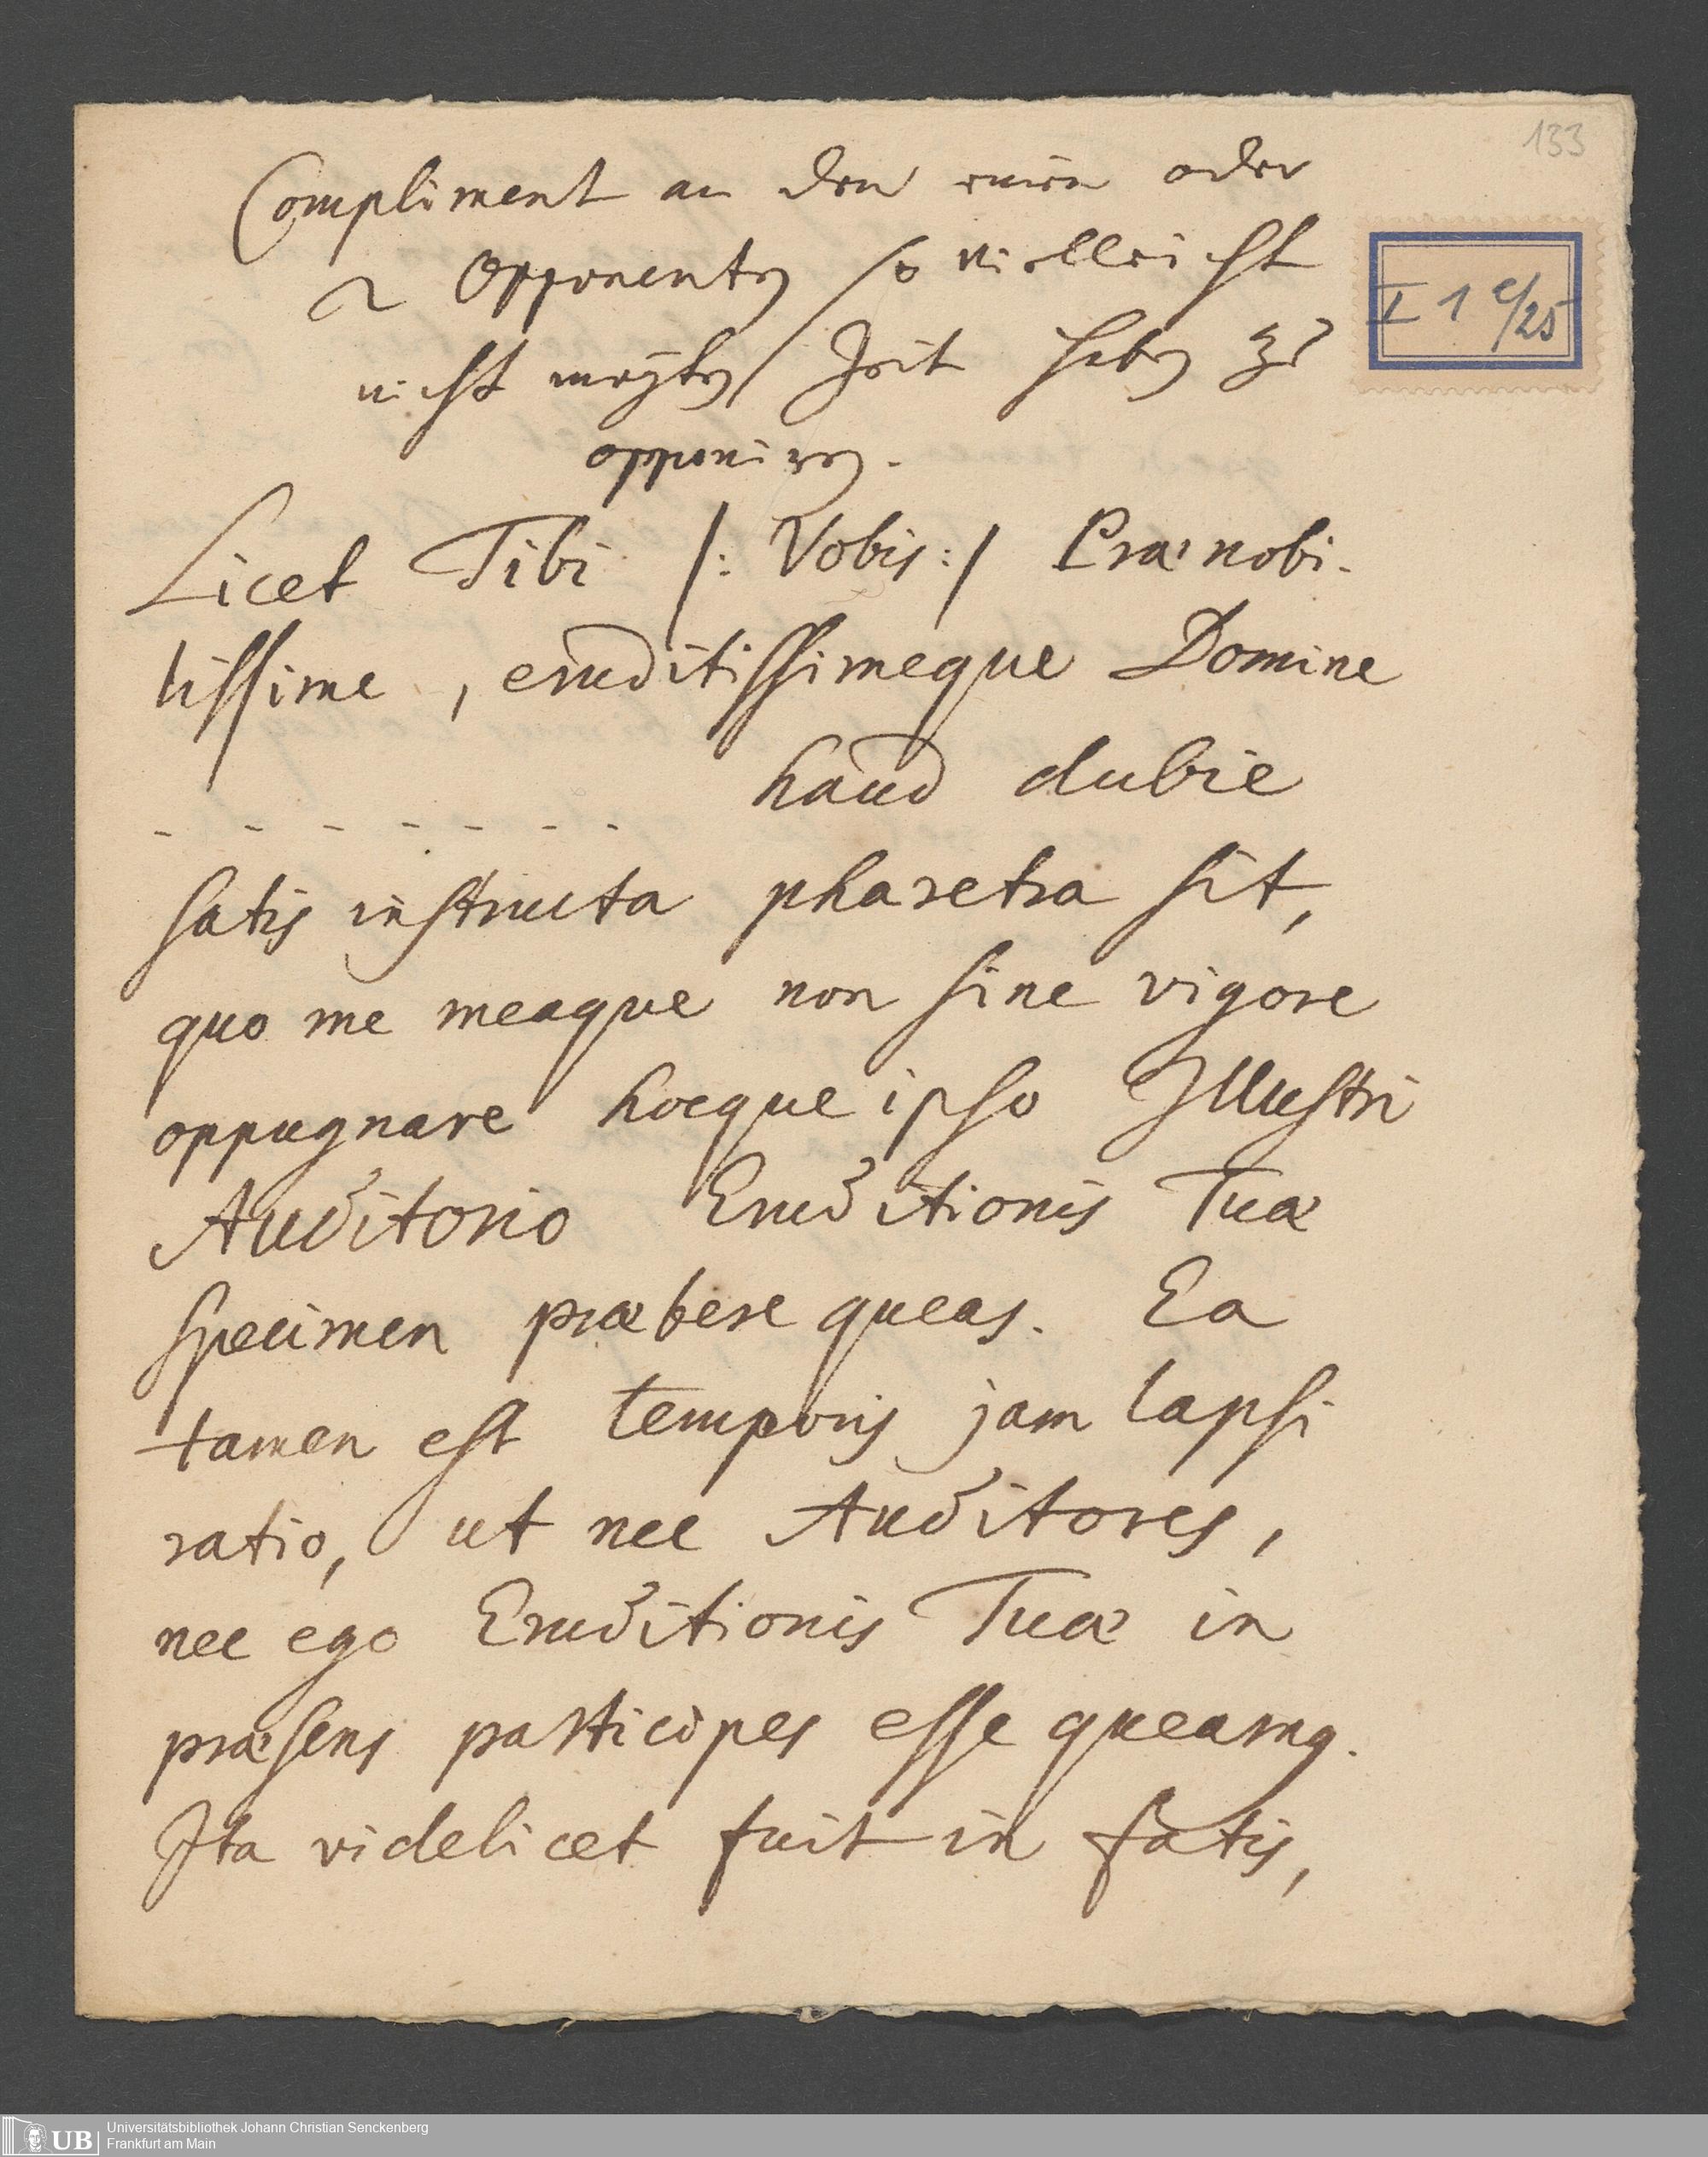 133
Compliment an den einen oder
2 Opponenten so vielleicht
nicht möchten Zeit haben zu
opponiren.
I 1 e/25
Licet Tibi /: Vobis :/ Prænobi-
lissime, eruditissimeque Domine
- - - - - - - haud dubie
satis instructa pharetra sit,
quo me meaque non sine vigore
oppugnare hocque ipso Illustri
Auditorio Eruditionis Tuæ
specimen præbere queas. Ea
tamen est temporis jam lapsi
ratio, ut nec Auditores,
nec ego Eruditionis Tuæ in
præsens participes esse queamq.
Ita videlicet fuit in fatis,
UB Universitätsbibliothek Johann Christian Senckenberg
Frankfurt am Main